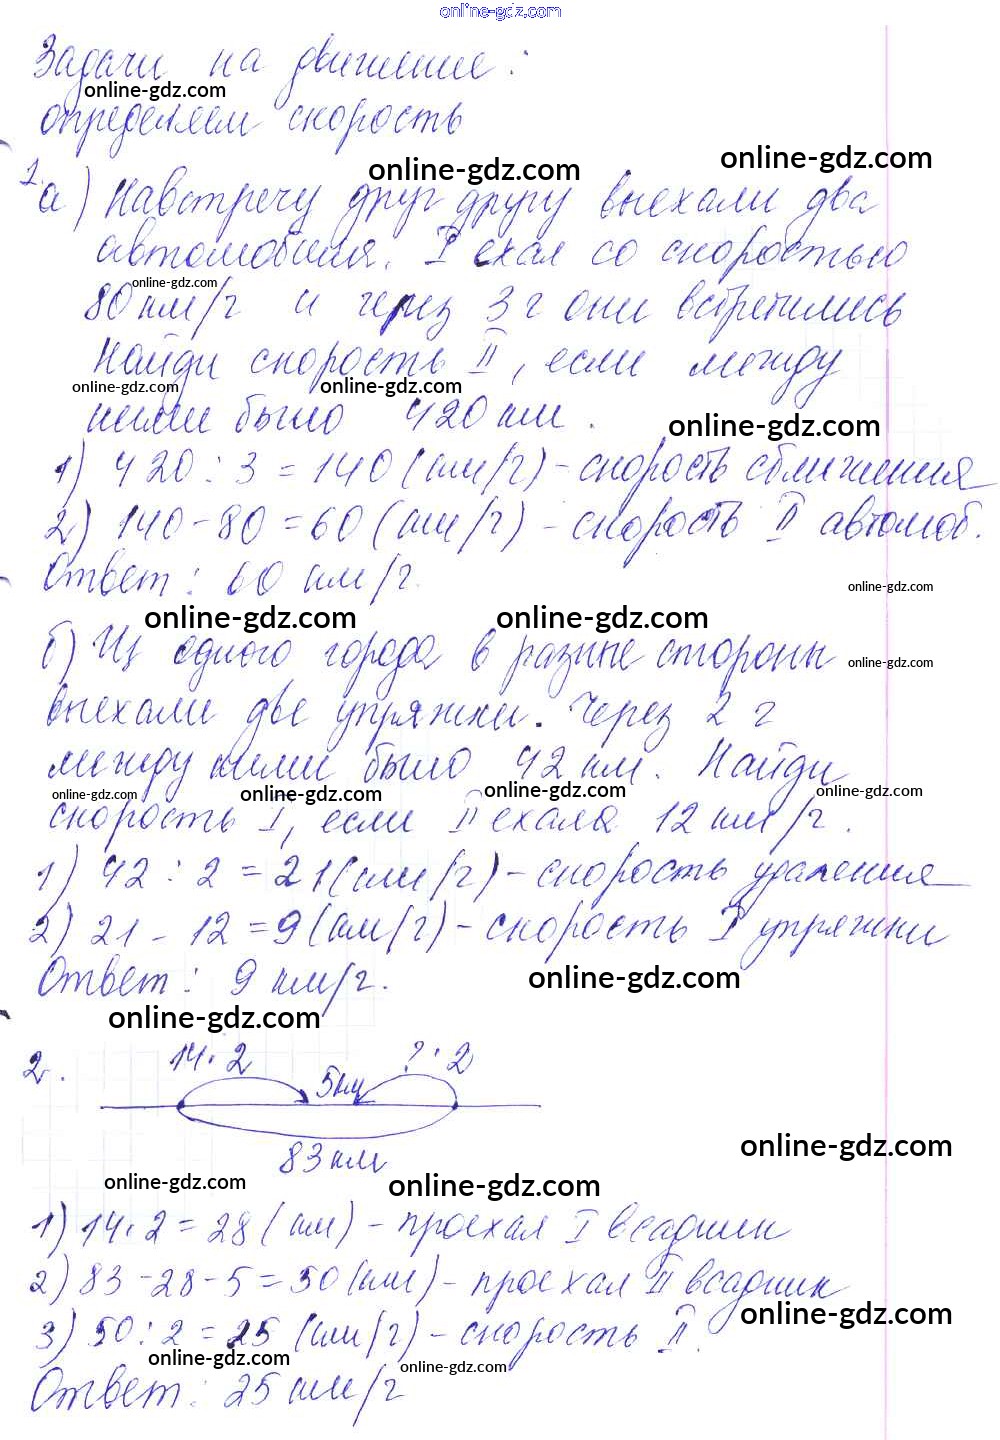 online-gdz.com
Задачи на движение:
online-gdz.com
определяем скорость
online-gdz.com online-gdz.com
1. а) Навстречу друг другу выехали два
автомобиля. I ехал со скоростью
online-gdz.com
80 км/г и через 3 г они встретились
Найди скорость II, если между
online-gdz.com online-gdz.com
ними было 420 км.
online-gdz.com
1) 420 : 3 = 140 (км/г) - скорость сближения
2) 140 - 80 = 60 (км/г) - скорость II автомоб.
Ответ: 60 км/г.
online-gdz.com
online-gdz.com online-gdz.com
б) Из одного города в разные стороны
online-gdz.com
выехали две упряжки. Через 2 г
между ними было 42 км. Найди
online-gdz.com online-gdz.com online-gdz.com online-gdz.com
скорость I, если II ехала 12 км/г.
1) 42 : 2 = 21 (км/г) - скорость удаления
2) 21 - 12 = 9 (км/г) - скорость I упряжки
Ответ: 9 км/г.
online-gdz.com
online-gdz.com
2. 14 · 2 ? · 2
5км
83 км
online-gdz.com
online-gdz.com online-gdz.com
1) 14 · 2 = 28 (км) - проехал I всадник
2) 83 - 28 - 5 = 50 (км) - проехал II всадник
online-gdz.com
3) 50 : 2 = 25 (км/г) - скорость II.
online-gdz.com online-gdz.com
Ответ: 25 км/г